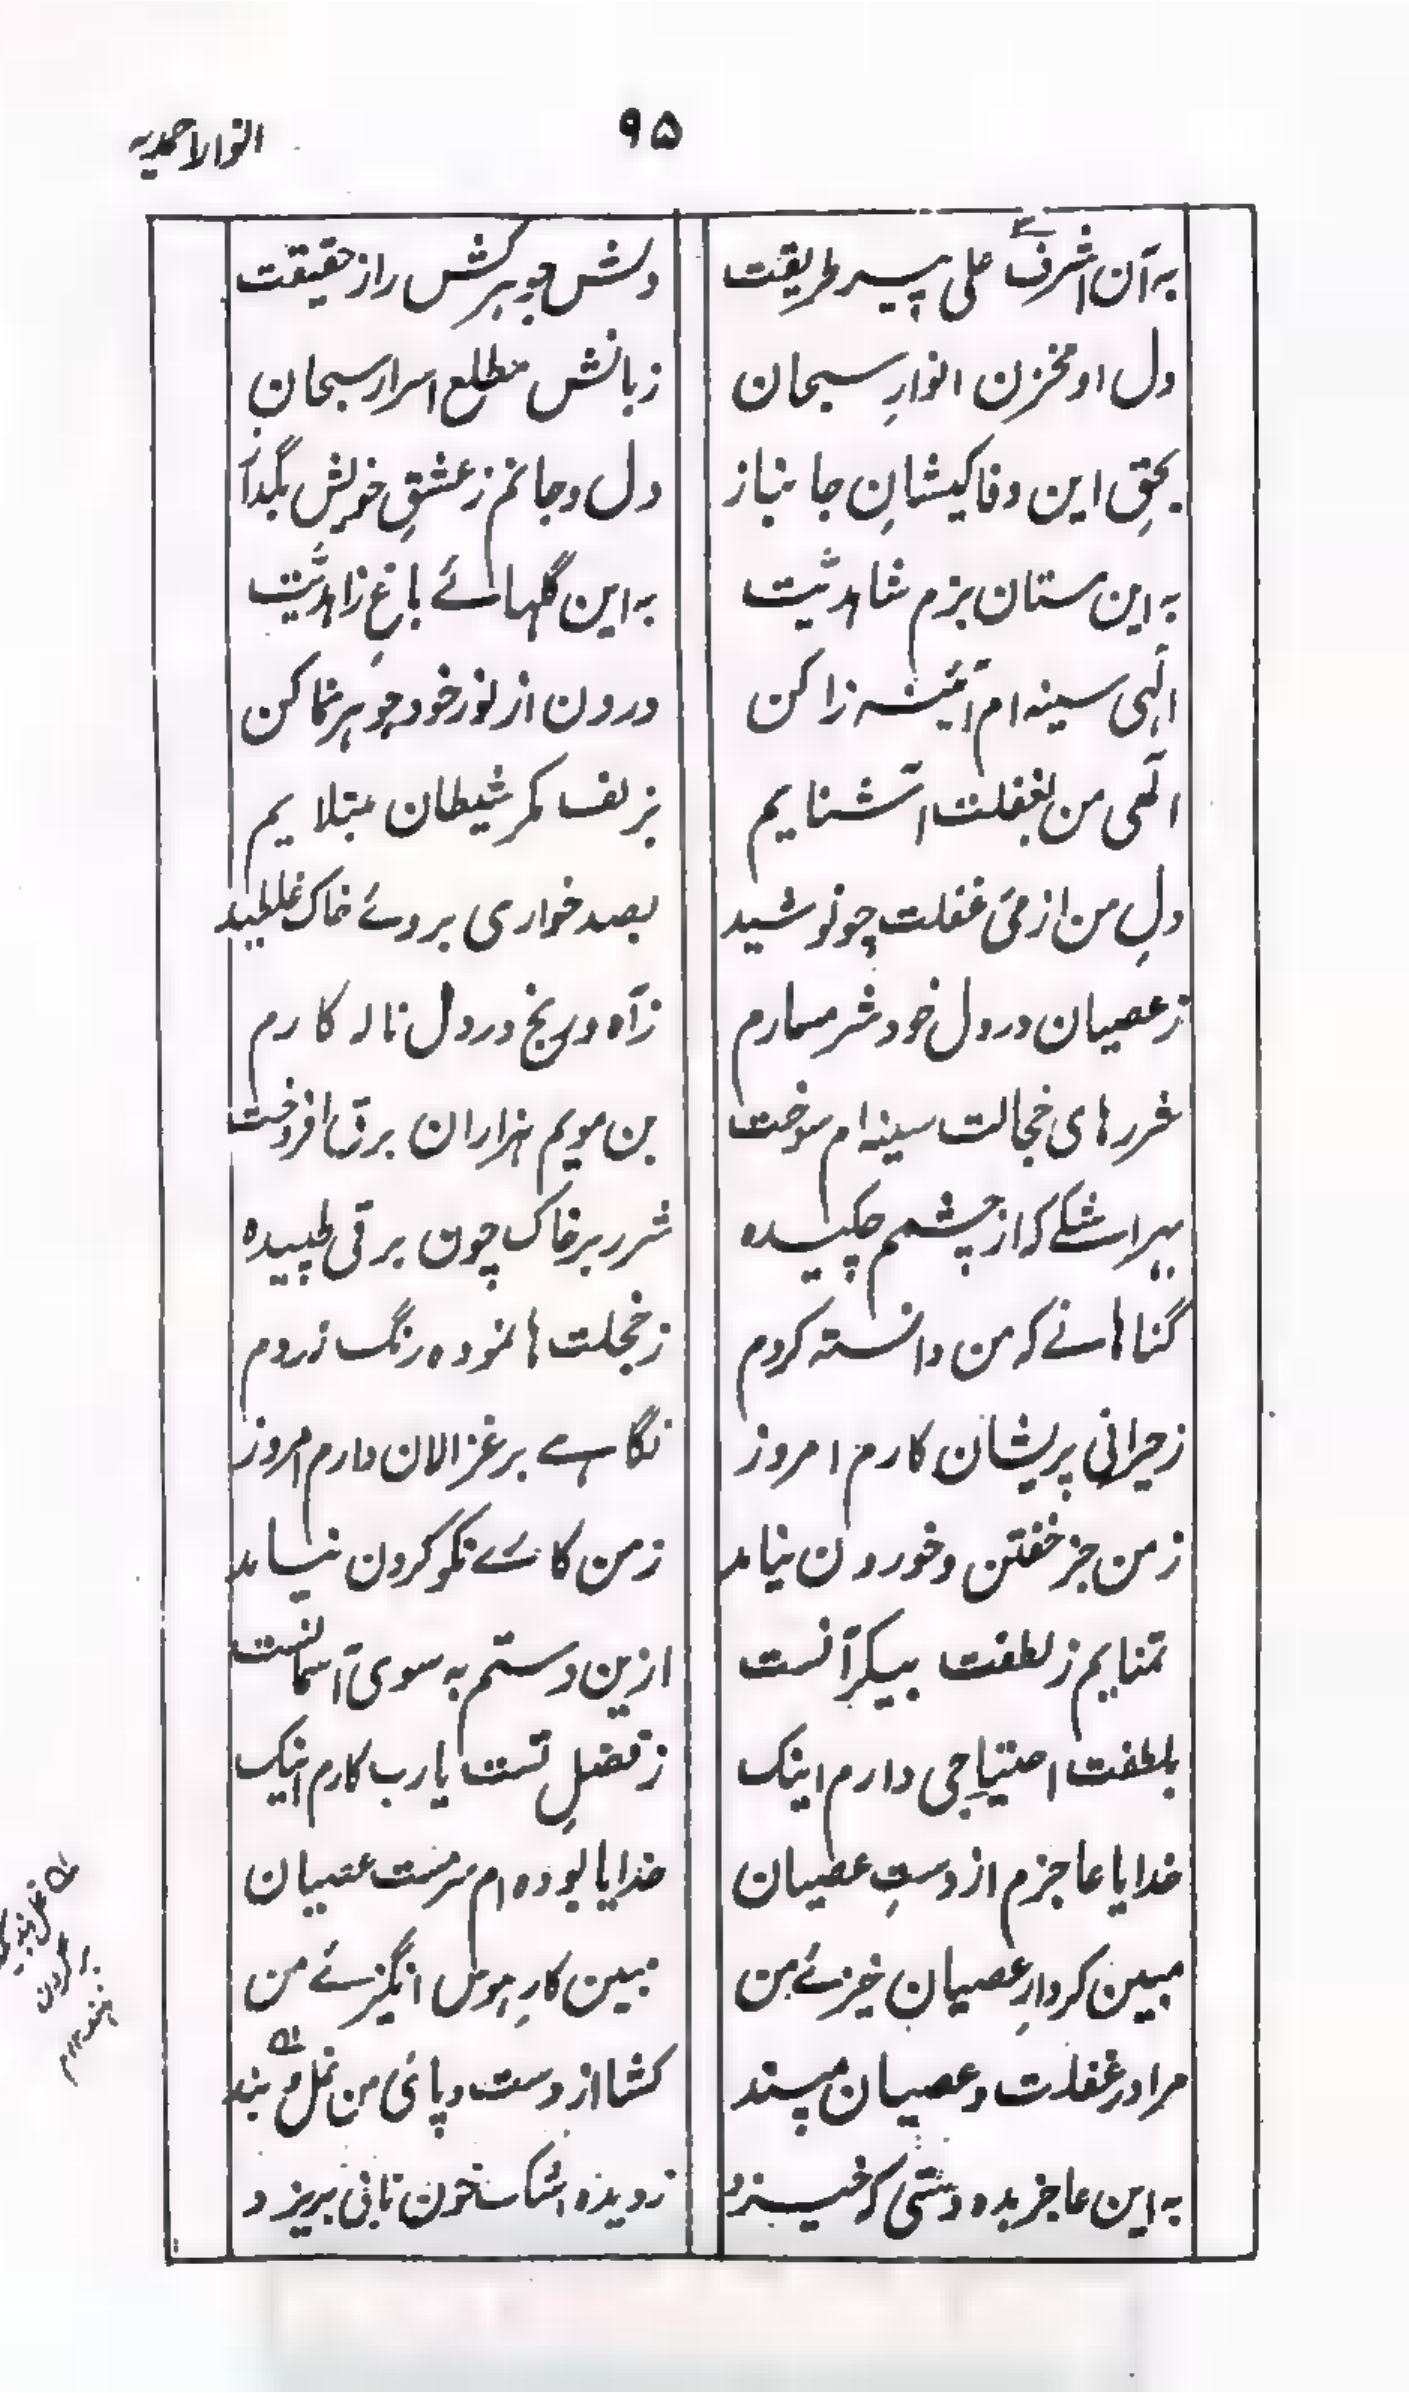 ۹۵
انوار لاحمدیہ
بہ آن اشرف علی پیر طریقت دلش جوہر کش راز حقیقت
دل او مخزن انوارِ سبحان زبانش مطلع اسرار سبحان
بحقِ این وفاکیشانِ جانباز دل و جانم ز عشقِ خویش بگداز
بہ این مستان بزم شاہدیّت بہ این گلہائے باغِ زاہدیّت
الٰہی سینہ ام آئینہ زا کن درون از نور خود جوہر نما کن
الٰہی من بغفلت آشنایم بزلف مکر شیطان مبتلایم
دلِ من از مئی غفلت چو نوشید بصد خواری بروئے خاک غلطید
ز عصیان در دل خود شرمسارم ز آہ و رنج در دل نالہ کارم
شررهای خجالت سینہ ام سوخت بن مویم ہزاران برق افروخت
بہر اشکے کہ از چشمم چکیدہ شرر بر خاک چون برقی طپیدہ
گناہانے کہ من دانستہ کردم ز خجلت ها نمودہ رنگ زردم
ز حیرانی پریشان کارم امروز نگاہے بر غزالان دارم امروز
ز من جز خفتن و خوردن نیاید ز من کارے نکو کردن نیاید
تمنایم ز لطفت بیکرانست ازین دستم بہ سوی آسمانست
بلطفت احتیاجی دارم اینک ز فضلِ تست یارب کارم اینک
خدایا عاجزم از دستِ عصیان خدایا بودہ ام سرمست عصیان
مبین کردارِ عصیان خیزئے من مبین کارِ ہوس انگیزئے من
مرا در غفلت و عصیان مپسند کشا از دست و پائی من غل و بند
بہ این عاجز بدہ دستی کہ خیزد ز دیدہ اشک خون نابی بریزد
بر گردن